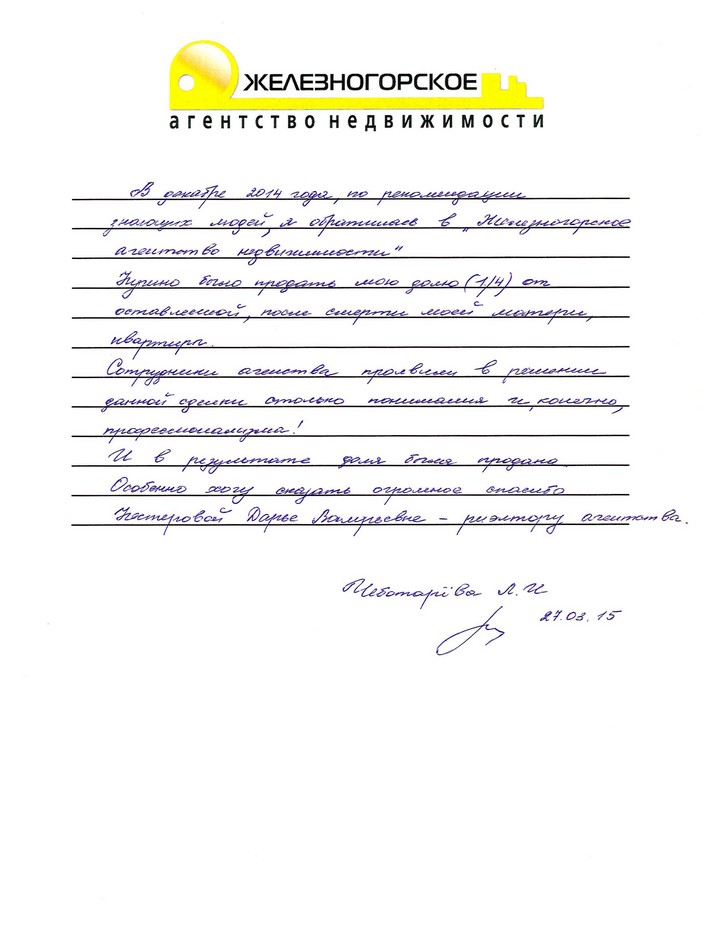 ЖЕЛЕЗНОГОРСКОЕ
агентство недвижимости
В декабре 2014 года, по рекомендации
знающих людей, я обратилась в „Железногорское
агентство недвижимости"
Нужно было продать мою долю (1/4) от
оставленной, после смерти моей матери,
квартиры.
Сотрудники агенства проявили в решении
данной сделки столько понимания и, конечно,
профессионализма!
И в результате доля была продана.
Особенно хочу сказать огромное спасибо
Нестеровой Дарье Валерьевне – риэлтору агентства.
Чеботарёва Л.И
27.03.15